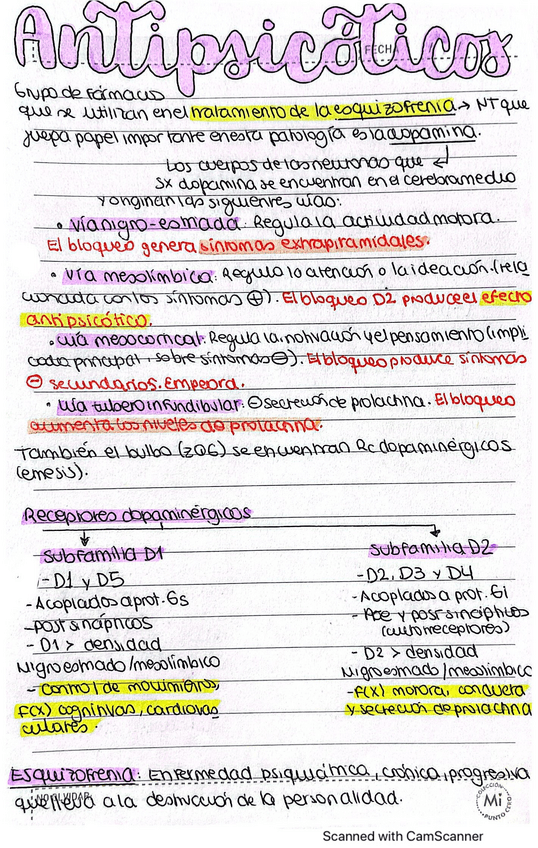 Antipsicóticos
FECHA
Grupo de fármacos
que se utilizan en el tratamiento de la esquizofrenia → NT que
juega papel importante en esta patología es la dopamina.
Los cuerpos de las neuronas que
sx dopamina se encuentran en el cerebro medio
y originan las siguientes vías:
• vía nigro-estriada. Regula la actividad motora.
El bloqueo genera síntomas extrapiramidales.
• vía mesolímbica: Regula la atención o la ideación. (rela
cionada con los síntomas ⊕). El bloqueo D2 produce el efecto
antipsicótico.
• vía mesocortical. Regula la motivación y el pensamiento (impli
cada principal. sobre síntomas ⊖). El bloqueo produce síntomas
⊖ secundarios. Empeora.
• vía tuberoinfundibular: ⊖ secreción de prolactina. El bloqueo
aumenta los niveles de prolactina.
También el bulbo (ZQG) se encuentran Rc dopaminérgicos
(emesis).
Receptores dopaminérgicos
Subfamilia D1
- D1 y D5
- Acoplados a prot. Gs
- Postsinápticos
- D1 > densidad
Nigroestriado/mesolímbico
- Control de movimientos,
F(x) cognitivas, cardiovas
culares.
Subfamilia D2
- D2, D3 y D4
- Acoplados a prot. Gi
- Pre y postsinápticos
(autorreceptores)
- D2 > densidad
Nigroestriado/mesolímbico
- F(x) motora, conducta
y secreción de prolactina
Esquizofrenia: Enfermedad psiquiátrica, crónica, progresiva
que lleva a la destrucción de la personalidad.
COLECCIÓN
Mi
PUNTO CERO
Scanned with CamScanner